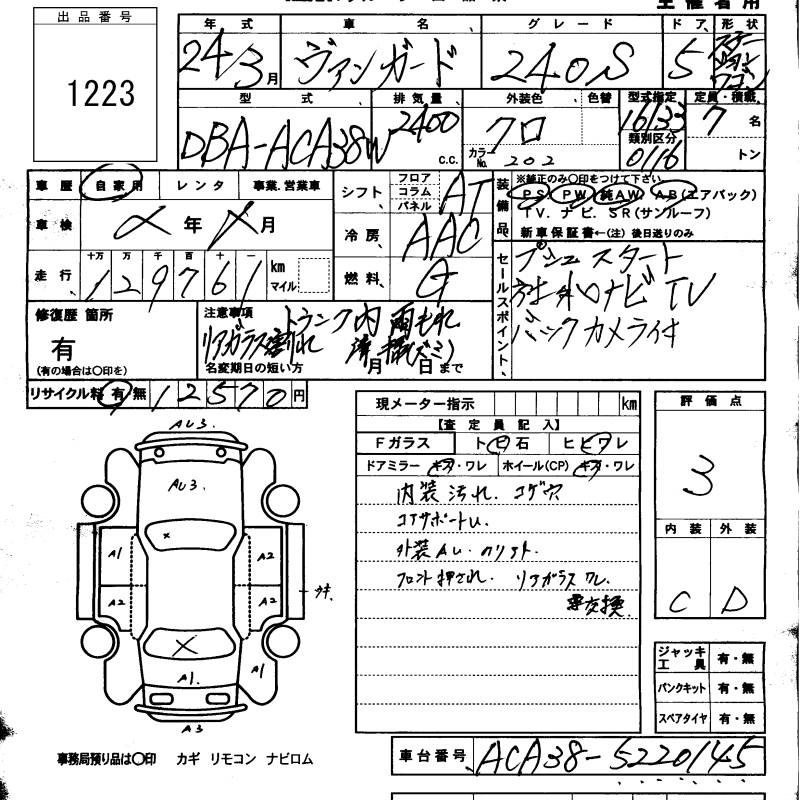 主催者用
出品番号
1223
年式 車名 グレード ドア 形状
24年3月 ヴァンガード 240S 5 ステーションワゴン
型式 排気量 外装色 色替 型式指定 定員・積載
DBA-ACA38W 2400 c.c. クロ カラーNo. 202 16133 類別区分 0116 7名 トン
車歴 自家用 レンタ 事業、営業車
車検 年 月
走行 十万 万 千 百 十 一
129761 km マイル
シフト フロア コラム パネル AT
冷房 AAC
燃料 G
装備品 ※純正のみ○印をつけて下さい
PS、PW、純AW、AB(エアバック)
TV、ナビ、SR(サンルーフ)
新車保証書←(注) 後日送りのみ
セールスポイント、
プシュスタート
社外ナビTV
バックカメラ付
修復歴 箇所
有
(有の場合は○印を)
注意事項
トランク内 雨もれ
リアガラス割れ
名変期日の短い方 月 日 まで
リサイクル料 有 無 12570円
現メーター指示 km
【査定員記入】
Fガラス トビ石 ヒビワレ
ドアミラー キズ・ワレ ホイール(CP) キズ・ワレ
内装汚れ. コゲ穴
コアサポートU.
外装AU.
フロント押され. リアガラスワレ.
要交換.
評価点
3
内装 外装
C D
AU3.
AU3.
×
A1 A2
A2 A2
×
A1. A1
A3
ジャッキ工具 有・無
パンクキット 有・無
スペアタイヤ 有・無
事務局預り品は○印 カギ リモコン ナビロム
車台番号 ACA38-5220145